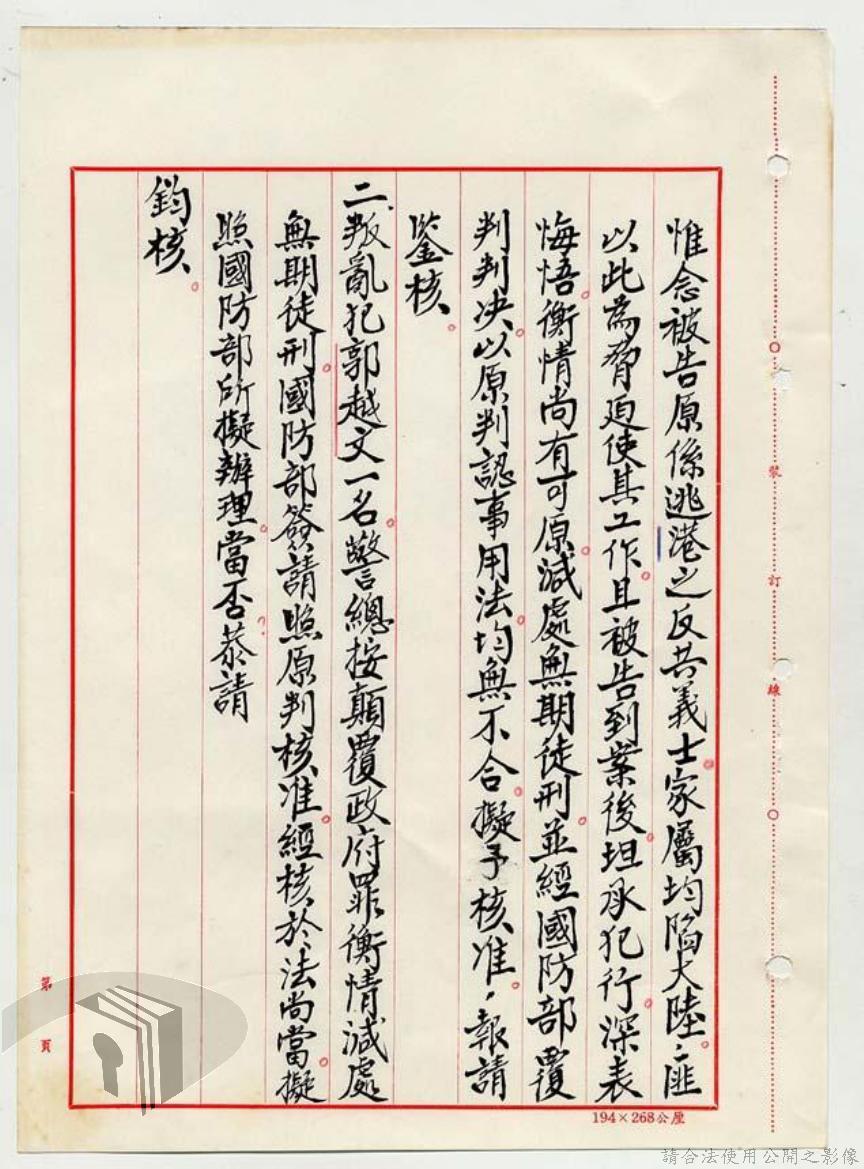 惟念被告原係逃港之反共義士。家屬均陷大陸。匪
以此為脅迫使其工作。且被告到案後。坦承犯行。深表
悔悟。衡情尚有可原。減處無期徒刑。並經國防部覆
判判決。以原判認事用法。均無不合。擬予核准。報請
鑒核。
二、叛亂犯郭越文一名。警總按顛覆政府罪衡情減處
無期徒刑。國防部簽請照原判核准。經核於法尚當。擬
照國防部所擬辦理。當否？恭請
鈞核。
裝訂線
第 頁
194×268公厘
請合法使用公開之影像